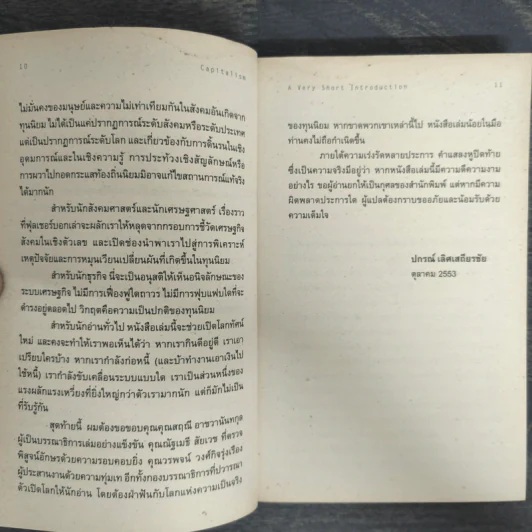 10 Capitalism
ไม่มั่นคงของมนุษย์และความไม่เท่าเทียมกันในสังคมอันเกิดจาก
ทุนนิยม ไม่ได้เป็นแค่ปรากฏการณ์ระดับสังคมหรือระดับประเทศ
แต่เป็นปรากฏการณ์ระดับโลก และเกี่ยวข้องกับการดิ้นรนในเชิง
อุดมการณ์และในเชิงความรู้ การประท้วงเชิงสัญลักษณ์หรือ
การผวาไปกอดกระแสท้องถิ่นนิยมมิอาจแก้ไขสถานการณ์แท้จริง
ได้มากนัก
สำหรับนักสังคมศาสตร์และนักเศรษฐศาสตร์ เรื่องราว
ที่ฟุลเชอร์บอกเล่าจะผลักเราให้หลุดจากกรอบการชี้วัดเศรษฐกิจ
สังคมในเชิงตัวเลข และเปิดช่องนำพาเราไปสู่การพิเคราะห์
เหตุปัจจัยและการหมุนเวียนเปลี่ยนผันที่เกิดขึ้นในทุนนิยม
สำหรับนักธุรกิจ นี่จะเป็นอนุสติให้เห็นอนิจลักษณะของ
ระบบเศรษฐกิจ ไม่มีการเฟื่องฟูใดถาวร ไม่มีการฟุบแฟบใดที่จะ
ดำรงอยู่ตลอดไป วิกฤตคือความเป็นปกติของทุนนิยม
สำหรับนักอ่านทั่วไป หนังสือเล่มนี้จะช่วยเปิดโลกทัศน์
ใหม่ และคงจะทำให้เราพอเห็นได้ว่า หากเรากินดีอยู่ดี เราเอา
เปรียบใครบ้าง หากเรากำลังก่อหนี้ (และบ้าทำงานเอาเงินไป
ใช้หนี้) เรากำลังขับเคลื่อนระบบแบบใด เราเป็นส่วนหนึ่งของ
แรงผลักแรงเหวี่ยงที่ยิ่งใหญ่กว่าตัวเรามากนัก แต่ก็มักไม่เป็น
ที่รับรู้กัน
สุดท้ายนี้ ผมต้องขอขอบคุณคุณสฤณี อาชวานันทกุล
ผู้เป็นบรรณาธิการเล่มอย่างแข็งขัน คุณณัฐเมธี สัยเวช ที่ตรวจ
พิสูจน์อักษรด้วยความรอบคอบยิ่ง คุณวรพจน์ วงศ์กิจรุ่งเรือง
ผู้ประสานงานด้วยความทุ่มเท อีกทั้งกองบรรณาธิการที่ปวารณา
ตัวเปิดโลกให้นักอ่าน โดยต้องฝ่าฟันกับโลกแห่งความเป็นจริง
A Very Short Introduction 11
ของทุนนิยม หากขาดพวกเขาเหล่านี้ไป หนังสือเล่มน้อยในมือ
ท่านคงไม่ถือกำเนิดขึ้น
ภายใต้ความเร่งรัดหลายประการ คำแสลงหูปิดท้าย
ซึ่งเป็นความจริงมีอยู่ว่า หากหนังสือเล่มนี้มีความดีความงาม
อย่างไร ขอผู้อ่านยกให้เป็นกุศลของสำนักพิมพ์ แต่หากมีความ
ผิดพลาดประการใด ผู้แปลต้องกราบขออภัยและน้อมรับด้วย
ความเต็มใจ
ปกรณ์ เลิศเสถียรชัย
ตุลาคม 2553